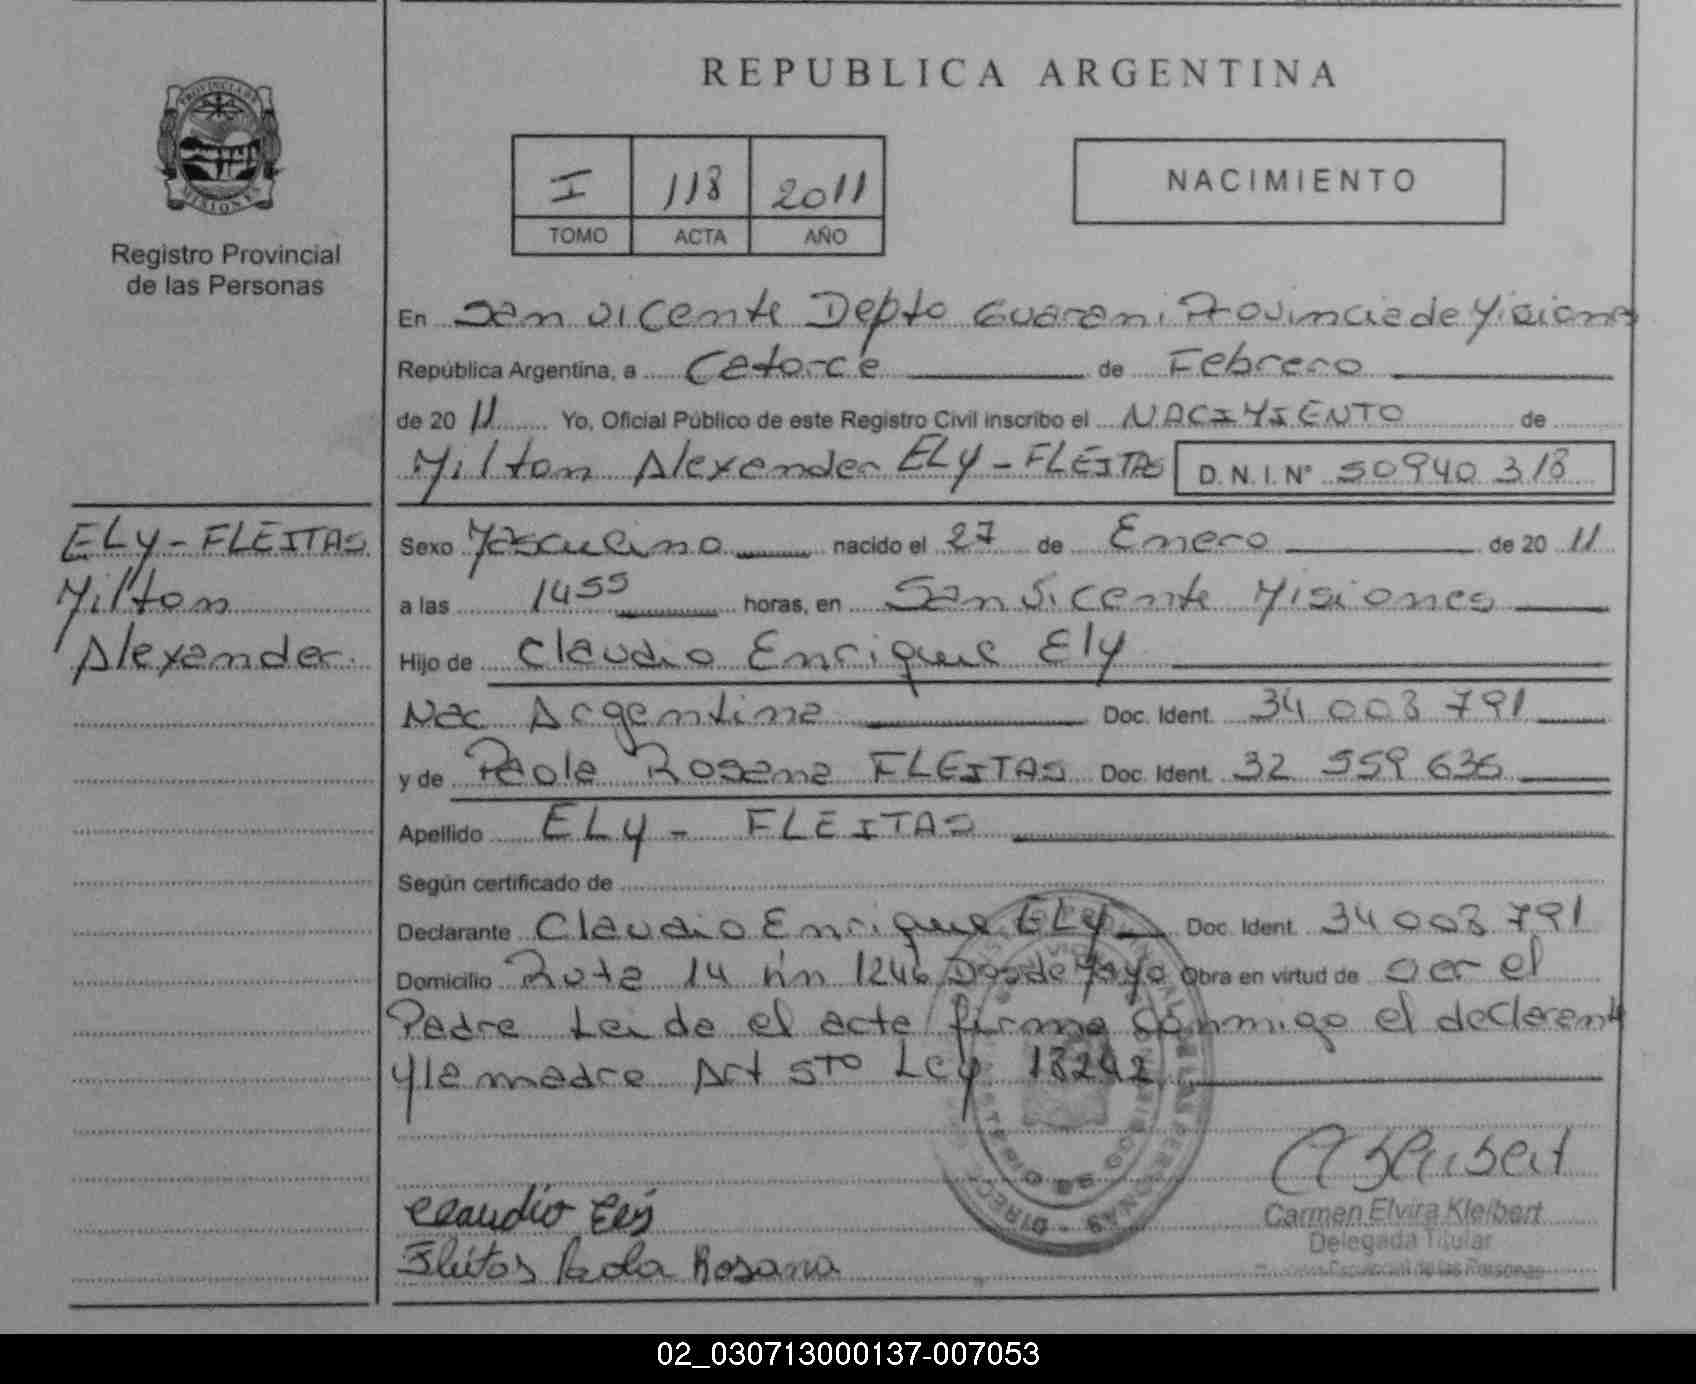 REPUBLICA ARGENTINA
PROVINCIA DE MISIONES
Registro Provincial
de las Personas
I 118 2011
TOMO ACTA AÑO
NACIMIENTO
En San Vicente Depto Guarani Provincia de Misiones
República Argentina, a Catorce de Febrero
de 20 11 Yo, Oficial Público de este Registro Civil inscribo el NACIMIENTO de
Milton Alexander ELY - FLEITAS D.N.I. N° 50940318
ELY - FLEITAS
Milton
Alexander
Sexo Masculino nacido el 27 de Enero de 20 11
a las 1455 horas, en San Vicente Misiones
Hijo de Claudio Enrique Ely
Nac Argentina Doc. Ident. 34 003 791
y de Paola Rosana FLEITAS Doc. Ident. 32 559 636
Apellido ELY - FLEITAS
Según certificado de
Declarante Claudio Enrique ELY Doc. Ident. 34 003 791
Domicilio Ruta 14 km 1246 Dos de Mayo Obra en virtud de ser el
Padre Leida el acta firma conmigo el declarante
y la madre Art 5to Ley 18242
Claudio Ely
Fleitas Paola Rosana
Carmen Elvira Kleibert
Delegada Titular
Provincial de las Personas
02_030713000137-007053